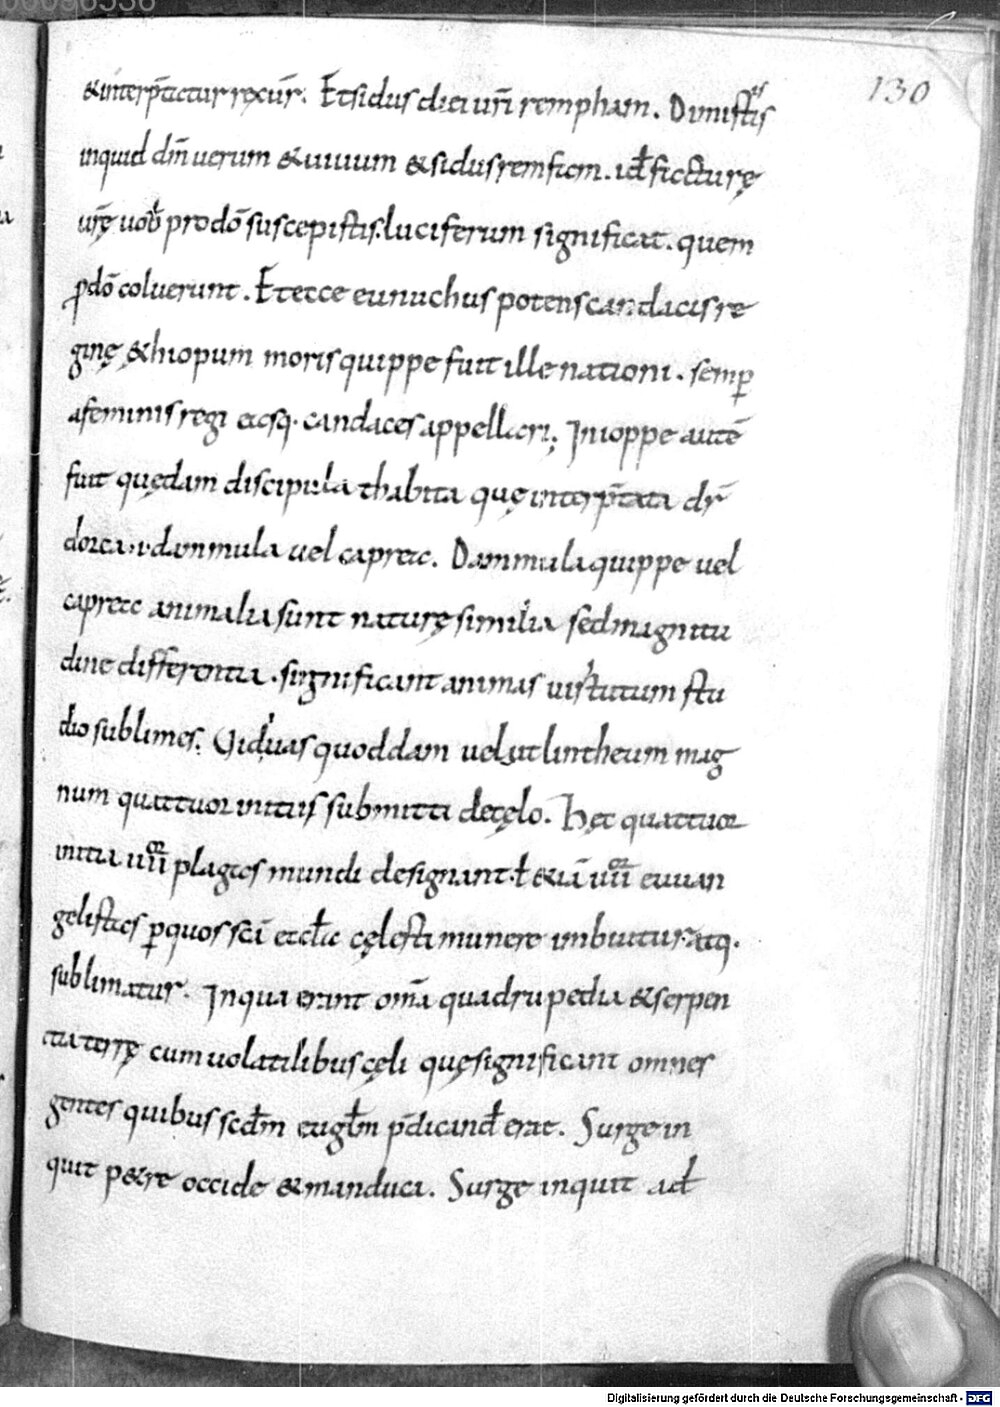 00096536
130
&interp̄tatur rex ur̄. Et sidus dei ur̄i rempham. Dimistis
inquid dm̄ uerum & uiuum & sidus remfam. id ē facturę
ur̄ę uob̄ pro dō suscepistis. luciferum significat. quem
p̄ dō coluerunt. Et ecce eunuchus potens candacis re
ginę ęthiopum moris quippe fuit ille nationi. semp̄
a feminis regi easq· candaces appellari. In ioppe autē
fuit quędam discipula thabita quę interp̄tata dr̄
dorca .i. dammula uel caprea. Dammula quippe uel
caprea animalia sunt naturę similia sed magnitu
dine differentia. significant animas uirtutum stu
dio sublimes. Vid& uas quoddam uelut lintheum mag
num quattuor initiis submitti de cęlo. Hęc quattuor
initia iiii or plagas mundi designant. ł &iā iiii or euuan
gelistas p̄ quos scā eccła cęlesti munere imbuitur atq·
sublimatur. In qua erant om̄a quadrupedia & serpen
tia terrę cum uolatilibus cęli quę significant omnes
gentes quibus scdm̄ eugłm p̄dicand̄ erat. Surge in
quit p&re occide & manduca. Surge inquit ad
Digitalisierung gefördert durch die Deutsche Forschungsgemeinschaft - DFG